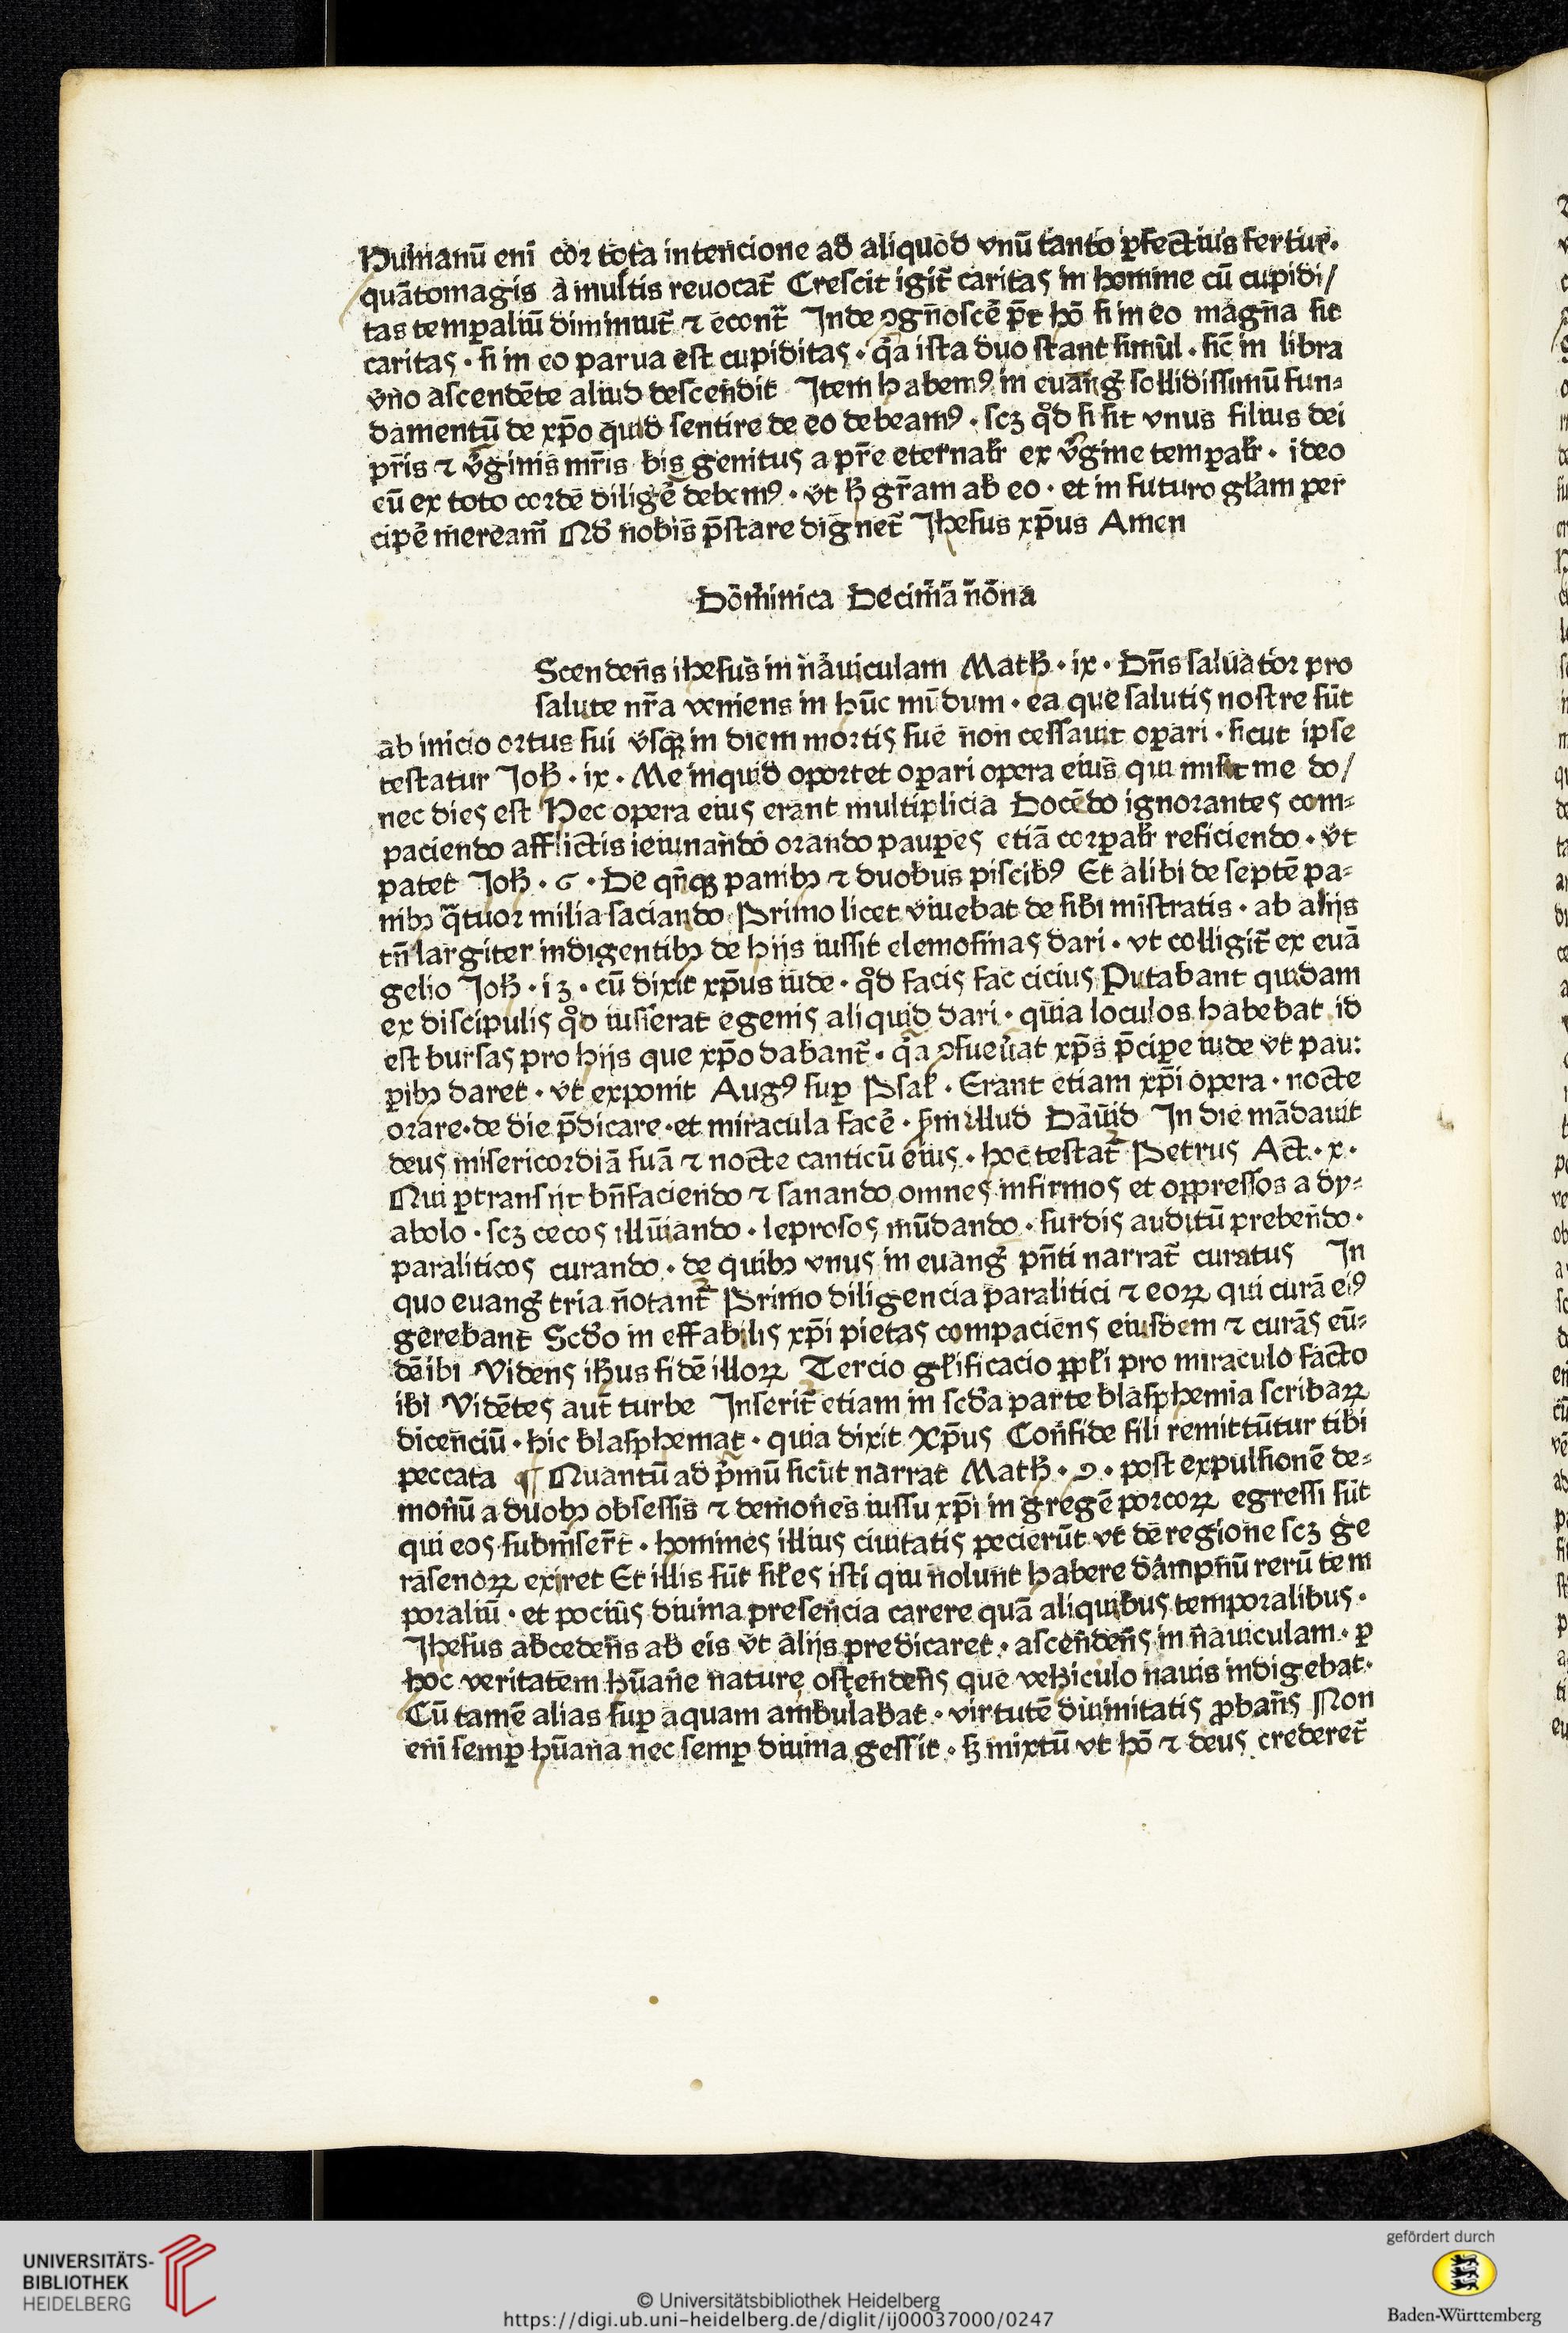 Humanū eni cor tota intencione ad aliquod vnū tanto ꝑfectius fertur·
quātomagis a multis reuocat̄ Crescit igit̄ caritas in homine cū cupidi/
tas temꝑaliū diminuit̄ ⁊ econt̄ Inde ꝯgnoscē p̄t hō si in eo magna sit
caritas · si in eo parua est cupiditas · q̄a ista duo stant simul · sic̄ in libra
vno ascendēte aliud descendit Item habemꝰ in euanḡ sollidissimū fun⸗
damentū de xp̄o quid sentire de eo debeamꝰ · scꝫ qd̊ si sit vnus filius dei
pr̄is ⁊ v̄ginis mr̄is bis genitus a pr̄e eternalr̄ ex v̄gine temꝑalr̄ · ideo
eū ex toto corde diligē debemꝰ · vt h̄ gr̄am ab eo · et in futuro gl̄am per
cipē meream̄ Qd̄ nobis p̄stare dignet̄ Jhesus xp̄us Amen
Dominica Decima nona
Scendens ihesus in nauiculam Math̄ · ix · Dn̄s saluator pro
salute nr̄a veniens in hūc mūdum · ea que salutis nostre sūt
ab inicio ortus sui vsqꝫ in diem mortis sue non cessauit oꝑari · sicut ipse
testatur Joh̄ · ix · Me inquid oportet oꝑari opera eius qui misit me do/
nec dies est Hec opera eius erant multiplicia Docēdo ignorantes com⸗
paciendo afflictis ieiunando orando pauꝑes etiā corꝑalr̄ reficiendo · vt
patet Joh̄ · 6 · De qn̄qꝫ panibꝫ ⁊ duobus piscibꝰ Et alibi de septē pa⸗
nibꝫ q̄tuor milia saciando Primo licet viuebat de sibi mīstratis · ab alijs
tn̄ largiter indigentibꝫ de hijs iussit elemosinas dari · vt colligit̄ ex euā
gelio Joh̄ · i3 · cū dixit xp̄us iude · qd̊ facis fac cicius Putabant quidam
ex discipulis qd̊ iusserat egenis aliquid dari · quia loculos habebat id
est bursas pro hijs que xp̄o dabant̄ · q̄a ꝯsueu̇at xp̄s p̄cipe iude vt pau:
ꝑibꝫ daret · vt exponit Augꝰ suꝑ Psal̄ · Erant etiam xp̄i opera · nocte
orare · de die p̄dicare · et miracula facē · s̄m illud Dauid In die mādauit
deus misericordiā suā ⁊ nocte canticū eius · hoc testat̄ Petrus Act · x ·
Qui ꝑtransijt bn̄faciendo ⁊ sanando omnes infirmos et oppressos a dy⸗
abolo · scꝫ cecos illūiando · leprosos mūdando · surdis auditū prebendo ·
paraliticos curando · de quibꝫ vnus in euanḡ pn̄ti narrat̄ curatus In
quo euanḡ tria notant̄ Primo diligencia paralitici ⁊ eoꝝ qui curā eiꝰ
gerebant Scd̄o in effabilis xp̄i pietas compaciens eiusdem ⁊ curās eū⸗
dē ibi Videns ih̄us fidē illoꝝ Tercio gl̄ificacio ppl̄i pro miraculo facto
ibi Vidētes aut̄ turbe Inserit̄ etiam in scd̄a parte blasphemia scribaꝝ
dicenciū · hic blasphemat · quia dixit Xp̄us Confide fili remittūtur tibi
peccata ¶ Quantū ad p̄mū sicut narrat Math̄ · 9 · post expulsionē de⸗
monū a duobꝫ obsessis ⁊ demones iussu xp̄i in gregē porcoꝝ egressi sūt
qui eos submiser̄t · homines illius ciuitatis pecierūt vt de regione scꝫ ge
rasenoꝝ exiret Et illis sūt sil̄es isti qui nolunt habere dampnū rerū tem
poraliū · et pocius diuina presencia carere quā aliquibus temporalibus ·
Jhesus abcedens ab eis vt alijs predicaret · ascendens in nauiculam · ꝑ
hoc veritatem hūane nature ostendens que vehiculo nauis indigebat ·
Cū tamē alias suꝑ aquam ambulabat · virtutē diuinitatis ꝓbans Non
eni semꝑ hūana nec semꝑ diuina gessit · sꝫ mixtū vt hō ⁊ deus crederet̄
UNIVERSITÄTS-
BIBLIOTHEK
HEIDELBERG
© Universitätsbibliothek Heidelberg
https://digi.ub.uni-heidelberg.de/diglit/ij00037000/0247
gefördert durch
Baden-Württemberg